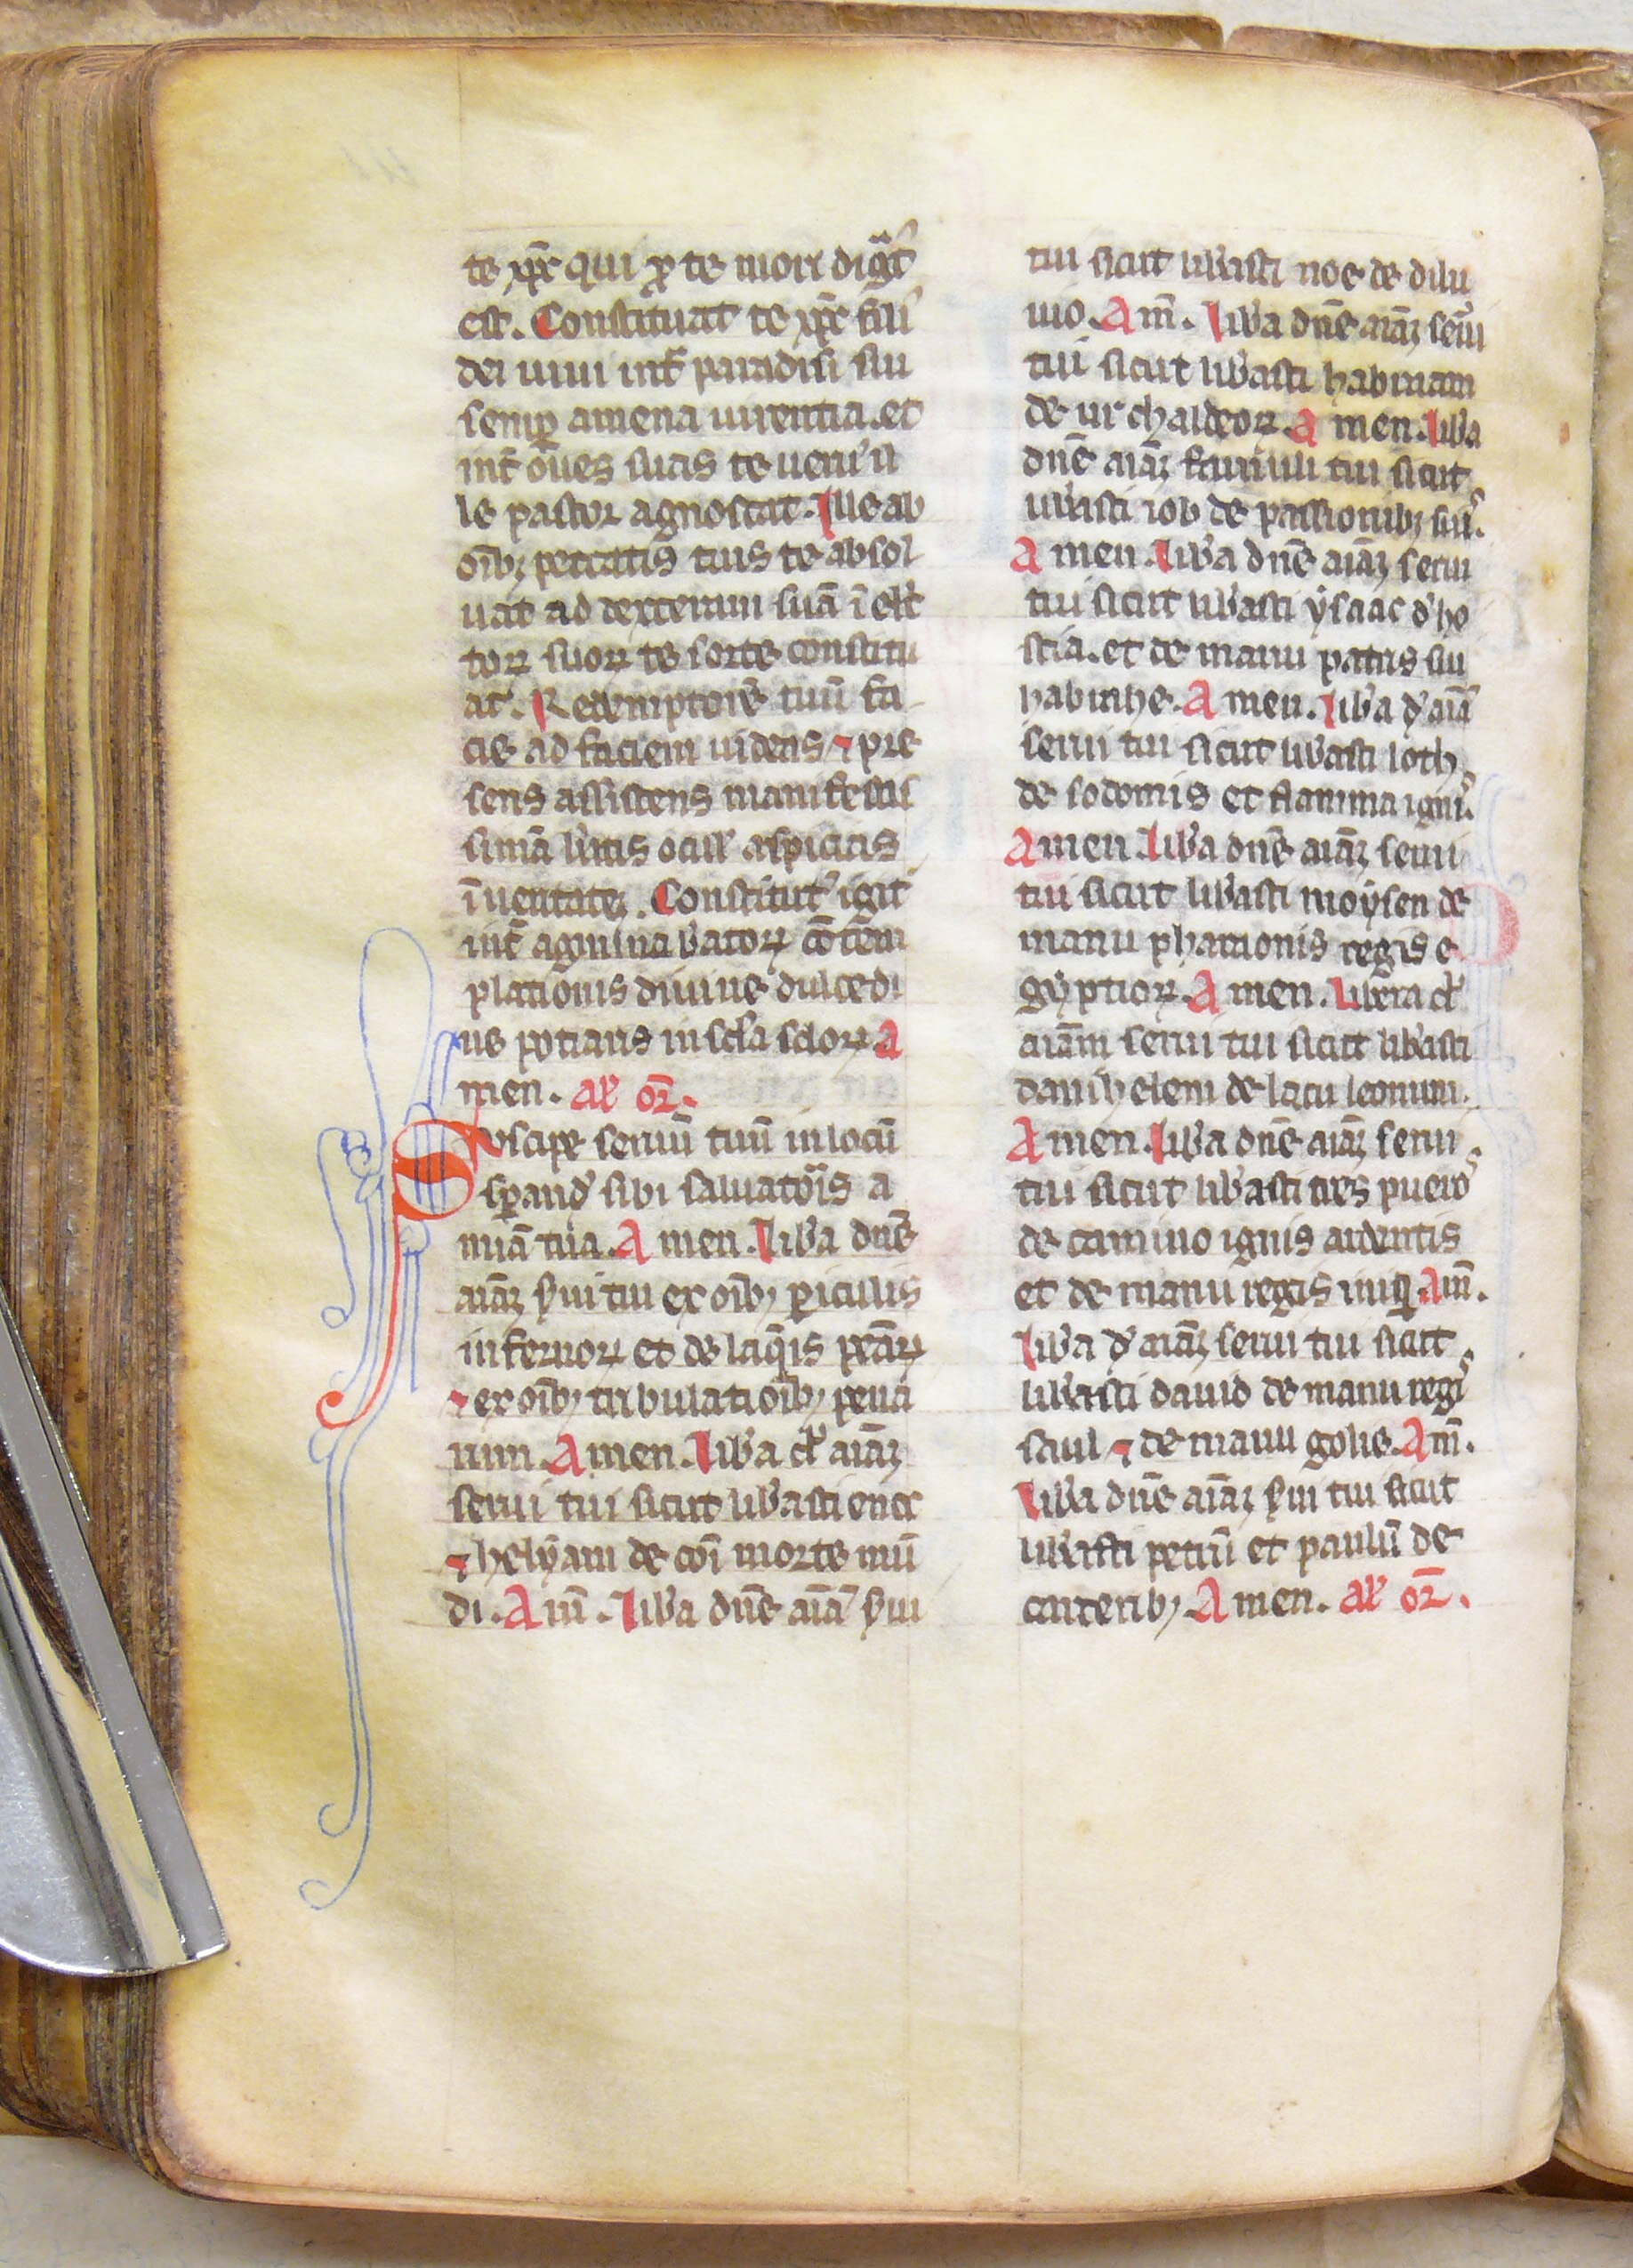 te xp̄c qui ꝓ te mori dignat᷑
est. Constituat te xp̄c fili᷑
dei uiui int̄ paradisi sui
semp̲ amena uirentia. et
int̄ oues suas te uerus il
le pastor agnoscat. Ille ab
oīb; peccatis tuis te absol
uat ad dexteram suā ī elec
toꝝ suoꝝ te sorte constitu
at. Redemptorē tuū fa
cie ad faciem uidens ⁊ pre
sens assistens manifestis
simā b̄ītis ocul᷑ aspicias
ī ueritatē. Constitut᷑ igit᷑
int̄ agmina b̄atoꝝ cōtem
plationis diuine dulcedi
ne potiaris in sc̄la sc̄loꝝ A
men. al᷑ or̄.
Uscipe seruū tuū in locū
Sꝑand᷑ sibi saluatōis a
miā tua. Amen. Lib᷑a dn̄e
aīaꝫ s᷑ui tui ex oīb; ꝑiculis
infernoꝝ et de laq̄is penaꝝ
⁊ ex oīb; tribulatiōib; penā
rum. Amen. Lib᷑a d᷑ aīaꝫ
serui tui sicut lib᷑asti enoc
⁊ helẏam de cōi morte mū
di. Am̄. Lib᷑a dn̄e aīā s᷑ui
tui sicut lib᷑asti noe de dilu
uio. Am̄. Lib᷑a dn̄e aīaꝫ serui
tui sicut lib᷑asti habraam
de ur chaldeoꝝ. Amen. Lib᷑a
dn̄e aīaꝫ famuli tui sicut
lib᷑asti iob de passionib; suis.
Amen. Lib᷑a dn̄e aīaꝫ serui
tui sicut lib᷑asti ẏsaac d᷑ ho
stia. et de manu patris sui
habrahe. Amen. Lib᷑a d᷑ aīā
serui tui sicut lib᷑asti loth
de sodomis et flamma ignis.
Amen. Lib᷑a dn̄e aīaꝫ serui
tui sicut lib᷑asti moẏsen de
manu pharaonis regis e
gẏptioꝝ. Amen. Libera d᷑
aīam serui tui sicut lib᷑asti
danihelem de lacu leonum.
Amen. Lib᷑a dn̄e aīaꝫ serui
tui sicut lib᷑asti tres pueros
de camino ignis ardentis
et de manu regis iniq̄. Am̄.
Lib᷑a d᷑ aīaꝫ serui tui sicut
lib᷑asti dauid de manu regis
saul ⁊ de manu golie. Am̄.
Lib᷑a dn̄e aīaꝫ s᷑ui tui sicut
lib᷑asti petrū et paulū de
carcerib; Amen. al᷑ or̄.